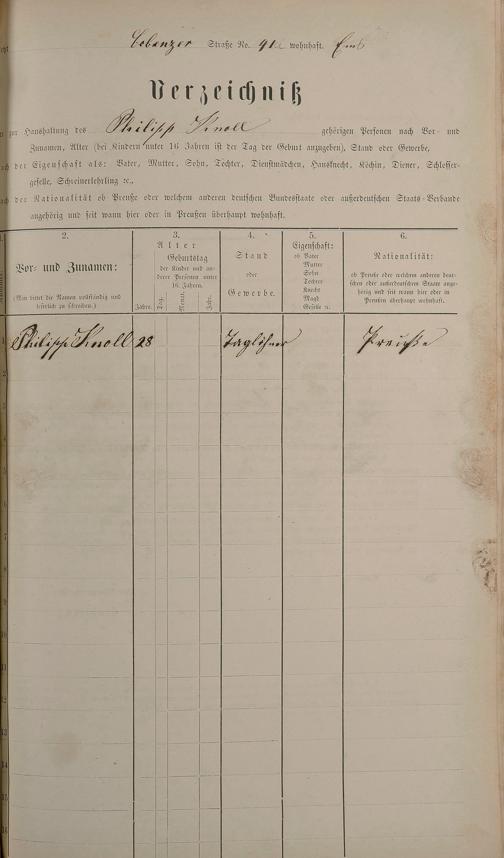 Cobenzer Straße No. 41 wohnhaft. Ems
Verzeichniß
zur Haushaltung des Philipp Knoll gehörigen Personen nach Vor- und
Zunamen, Alter (bei Kindern unter 16 Jahren ist der Tag der Geburt anzugeben), Stand oder Gewerbe,
der Eigenschaft als: Vater, Mutter, Sohn, Tochter, Dienstmädchen, Hausknecht, Köchin, Diener, Schlosser-
geselle, Schreinerlehrling ꝛc.,
der Nationalität ob Preuße oder welchem anderen deutschen Bundesstaate oder außerdeutschen Staats-Verbande
angehörig und seit wann hier oder in Preußen überhaupt wohnhaft.
2. 3. 4. 5. 6.
Vor- und Zunamen:
(Man bittet die Namen vollständig und leserlich zu schreiben.)
Alter
Geburtstag
der Kinder und an-
derer Personen unter
16 Jahren.
Jahre. Tag. Monat. Jahr.
Stand
oder
Gewerbe.
Eigenschaft:
ob Vater
Mutter
Sohn
Tochter
Knecht
Magd
Geselle u.
Nationalität:
ob Preuße oder welchem anderen deut-
schen oder außerdeutschen Staate ange-
hörig und seit wann hier oder in
Preußen überhaupt wohnhaft.
1 Philipp Knoll 28 Taglöhner Preuße
2
3
4
5
6
7
8
9
10
11
12
13
14
15
16